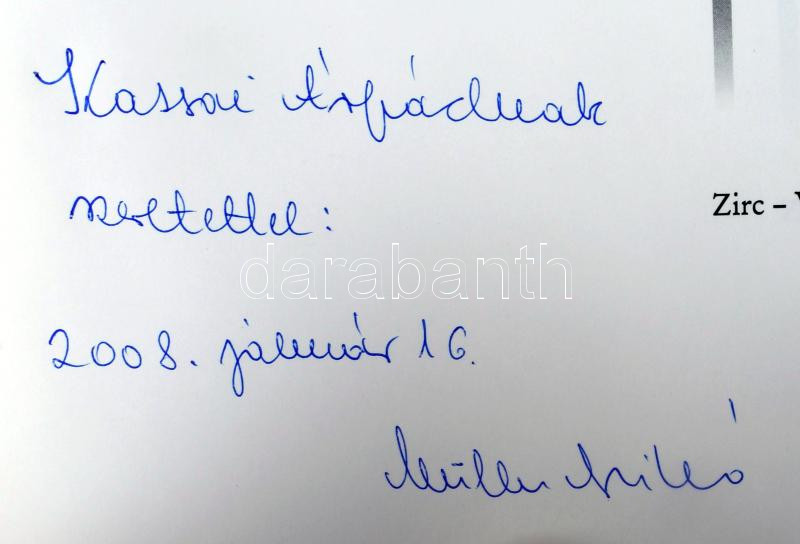 Kassai Árpádnak
Zirc –
szeretettel:
darabanth
2008. január 16.
Müller Anikó